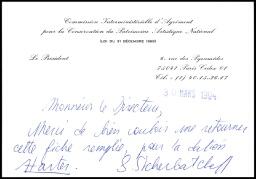 Commission Interministérielle d'Agrément
pour la Conservation du Patrimoine Artistique National
(LOI DU 31 DÉCEMBRE 1968)
Le Président
6, rue des Pyramides
75041 Paris Cedex 01
Tél. : (1) 40.15.36.17
30 MARS 1994
Monsieur le Directeur,
Merci de bien vouloir me retourner
cette fiche remplie, pour la dation
Hartes.